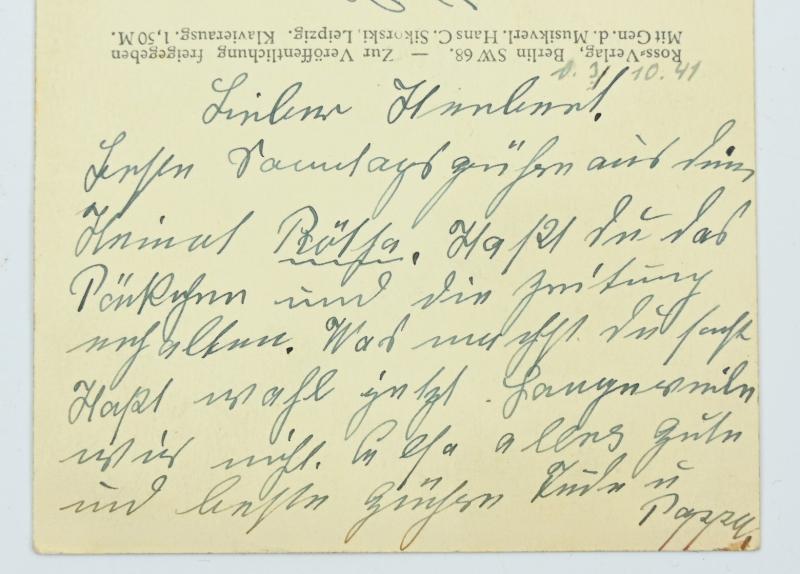 Ross-Verlag, Berlin SW 68. — Zur Veröffentlichung freigegeben
Mit Gen. d. Musikverl. Hans C. Sikorski, Leipzig. Klavierausg. 1,50 M.
10.41
Lieber Herbert!
Beste Sonntagsgrüße aus dein
Heimat Rötha. Haßt du das
Päckchen und die Zeitung
erhalten. Was machst du sonst
Haßt wohl jetzt Langeweile
wir nicht. Also alles gute
und beste Grüße u
Pappa.